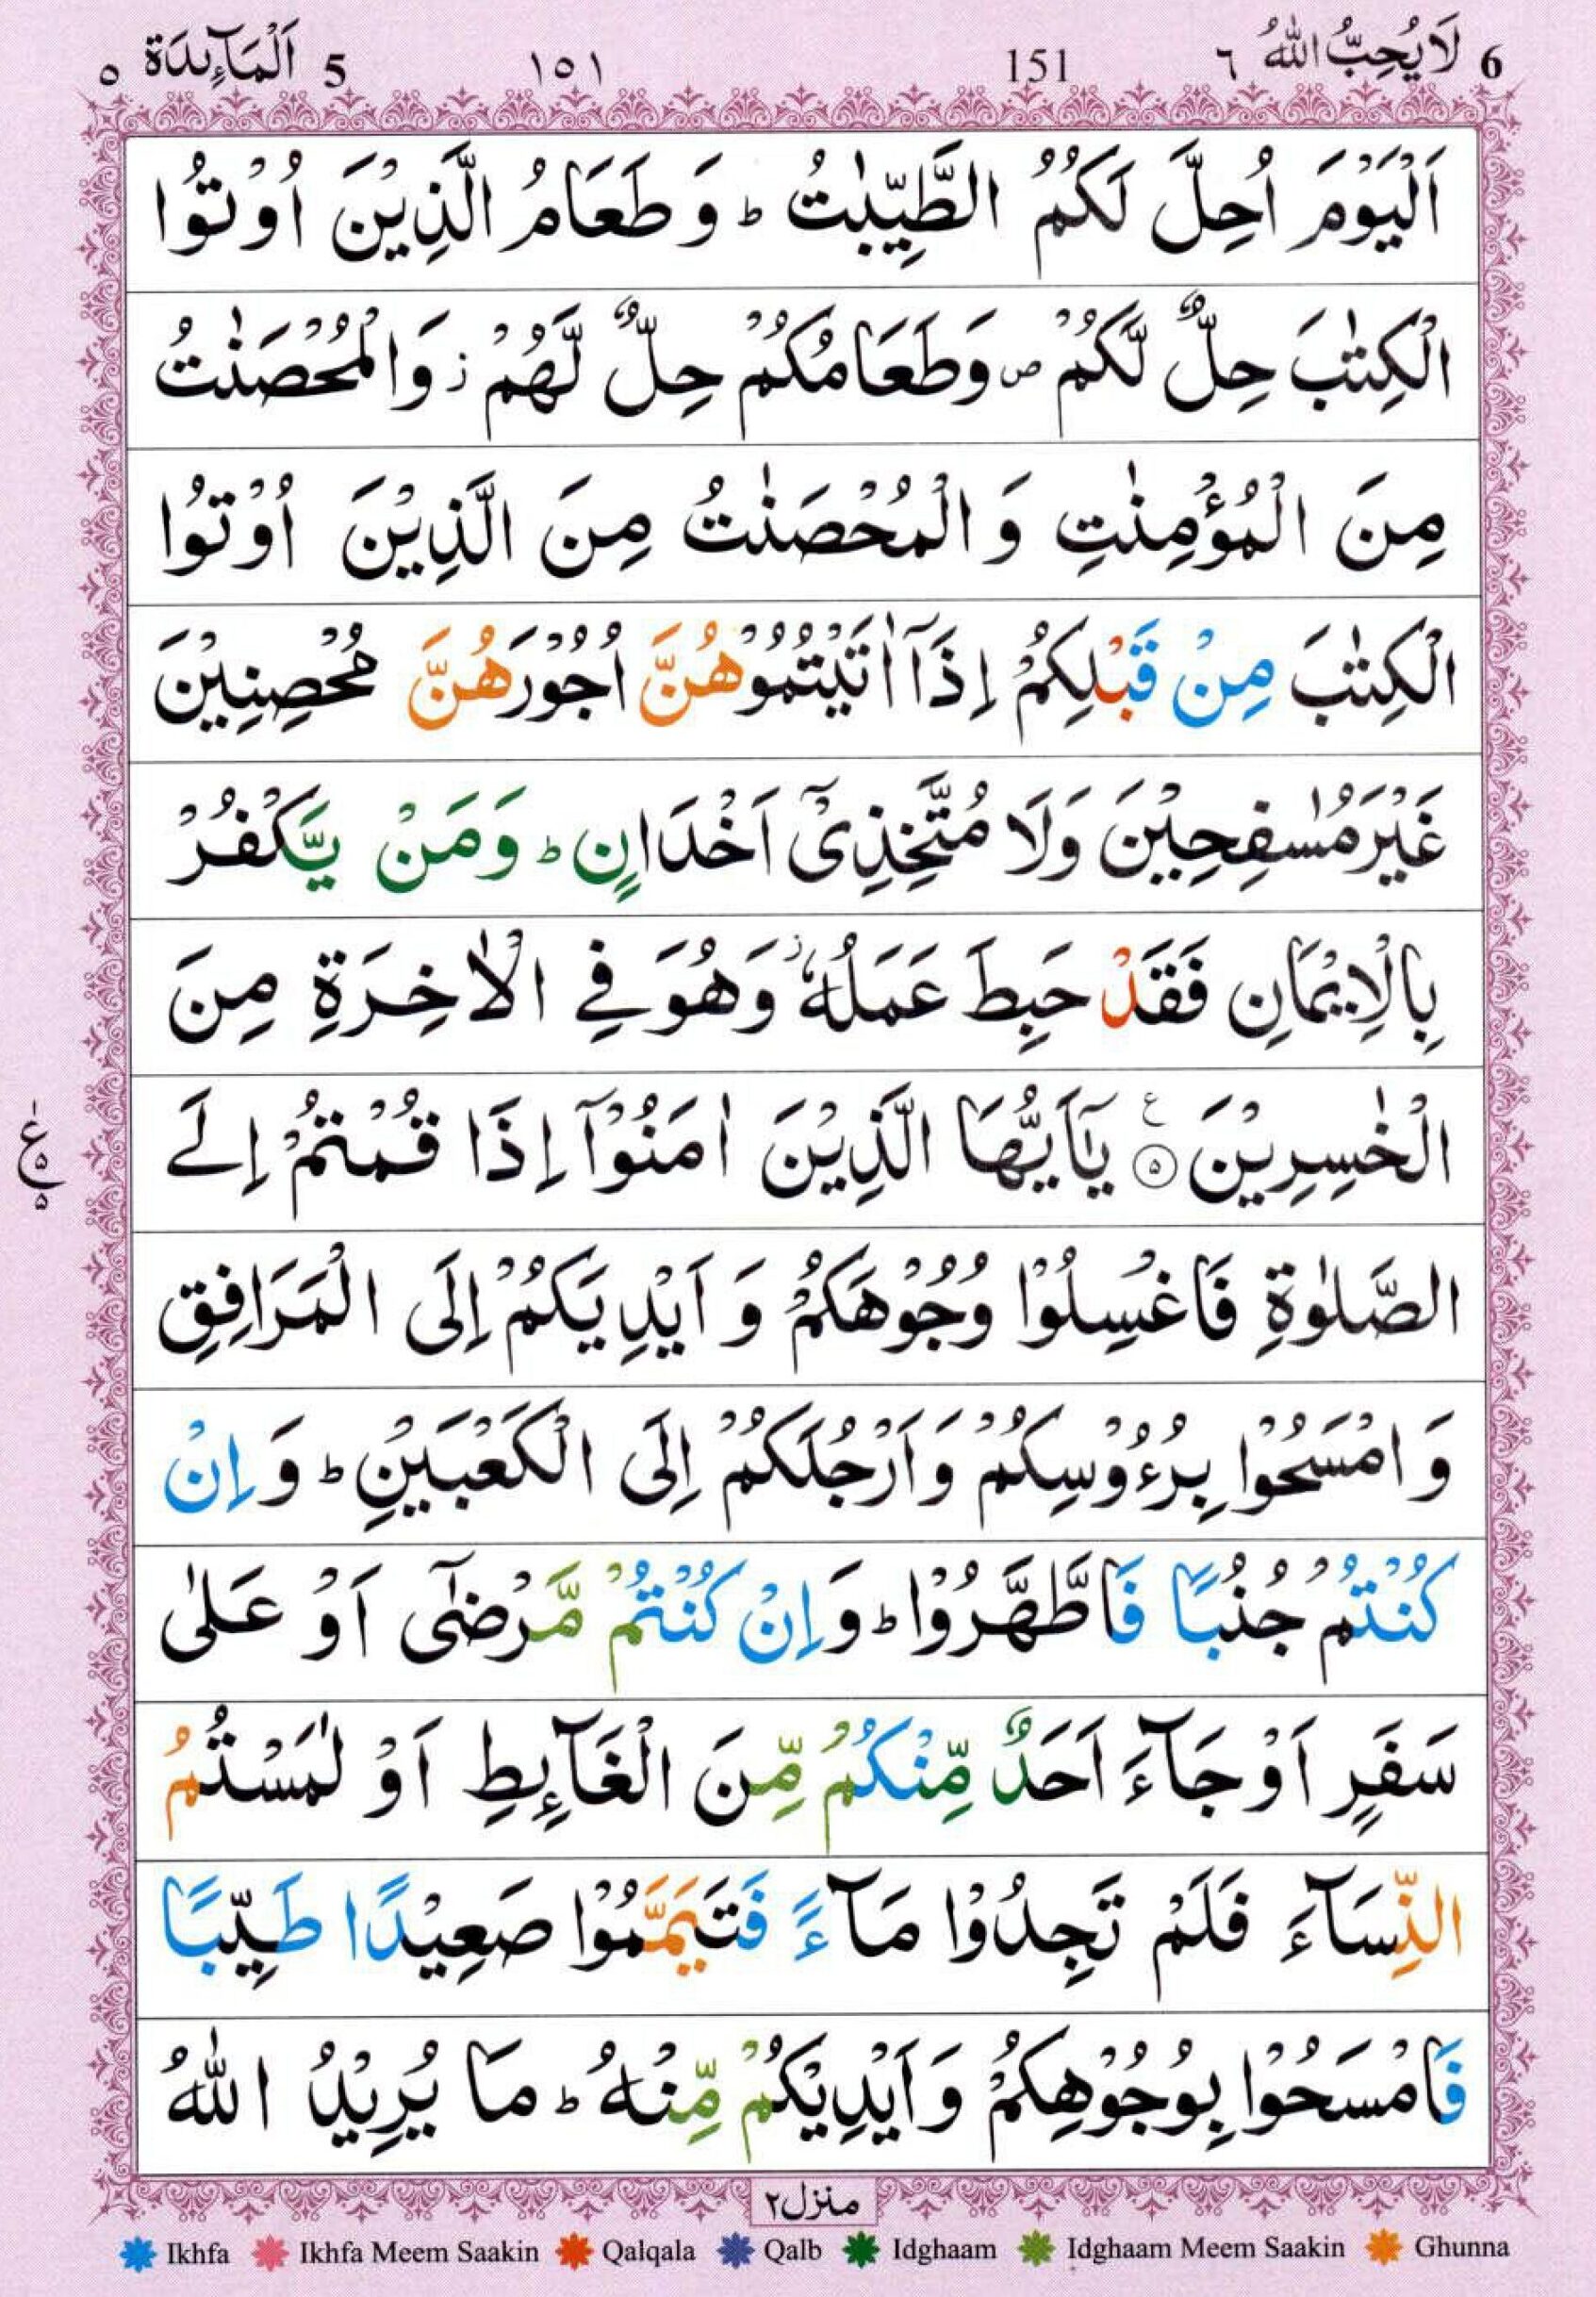 6 لَا يُحِبُّ اللّٰهُ ٦ 151 ١٥١ 5 اَلْمَآئِدَة ٥
اَلْيَوْمَ اُحِلَّ لَكُمُ الطَّيِّبٰتُ ؕ وَ طَعَامُ الَّذِيْنَ اُوْتُوا
الْكِتٰبَ حِلٌّ لَّكُمْ ۪ وَطَعَامُكُمْ حِلٌّ لَّهُمْ ؗ وَالْمُحْصَنٰتُ
مِنَ الْمُؤْمِنٰتِ وَ الْمُحْصَنٰتُ مِنَ الَّذِيْنَ اُوْتُوا
الْكِتٰبَ مِنْ قَبْلِكُمْ اِذَاۤ اٰتَيْتُمُوْهُنَّ اُجُوْرَهُنَّ مُحْصِنِيْنَ
غَيْرَ مُسٰفِحِيْنَ وَلَا مُتَّخِذِيْۤ اَخْدَانٍ ؕ وَمَنْ يَّكْفُرْ
بِالْاِيْمَانِ فَقَدْ حَبِطَ عَمَلُهٗ ؗ وَهُوَ فِي الْاٰخِرَةِ مِنَ
الْخٰسِرِيْنَ ۵ ع يٰۤاَيُّهَا الَّذِيْنَ اٰمَنُوْۤا اِذَا قُمْتُمْ اِلَى
ع ۵ ۵
الصَّلٰوةِ فَاغْسِلُوْا وُجُوْهَكُمْ وَ اَيْدِيَكُمْ اِلَى الْمَرَافِقِ
وَ امْسَحُوْا بِرُءُوْسِكُمْ وَاَرْجُلَكُمْ اِلَى الْكَعْبَيْنِ ؕ وَ اِنْ
كُنْتُمْ جُنُبًا فَاطَّهَّرُوْا ؕ وَ اِنْ كُنْتُمْ مَّرْضٰۤى اَوْ عَلٰى
سَفَرٍ اَوْ جَآءَ اَحَدٌ مِّنْكُمْ مِّنَ الْغَآئِطِ اَوْ لٰمَسْتُمُ
النِّسَآءَ فَلَمْ تَجِدُوْا مَآءً فَتَيَمَّمُوْا صَعِيْدًا طَيِّبًا
فَامْسَحُوْا بِوُجُوْهِكُمْ وَ اَيْدِيْكُمْ مِّنْهُ ؕ مَا يُرِيْدُ اللّٰهُ
منزل ۲
Ikhfa Ikhfa Meem Saakin Qalqala Qalb Idghaam Idghaam Meem Saakin Ghunna